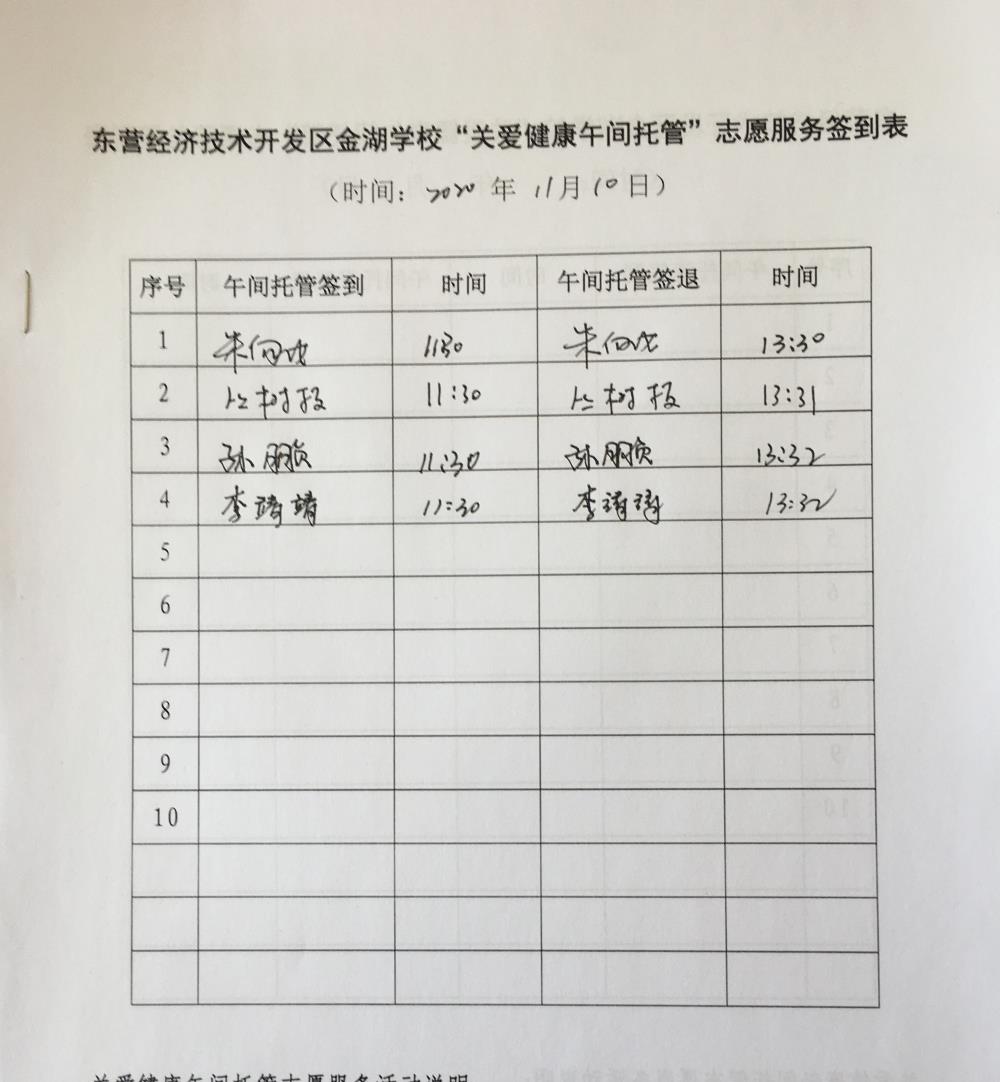 东营经济技术开发区金湖学校“关爱健康午间托管”志愿服务签到表
(时间: 2020 年 11月10日)
序号 午间托管签到 时间 午间托管签退 时间
1 朱向 1130 朱向 13:30
2 树报 11:30 树报 13:31
3 孙鹏 11:30 孙鹏 13:32
4 李靖靖 11:30 李靖靖 13:32
5
6
7
8
9
10
关爱健康午间托管志愿服务活动说明